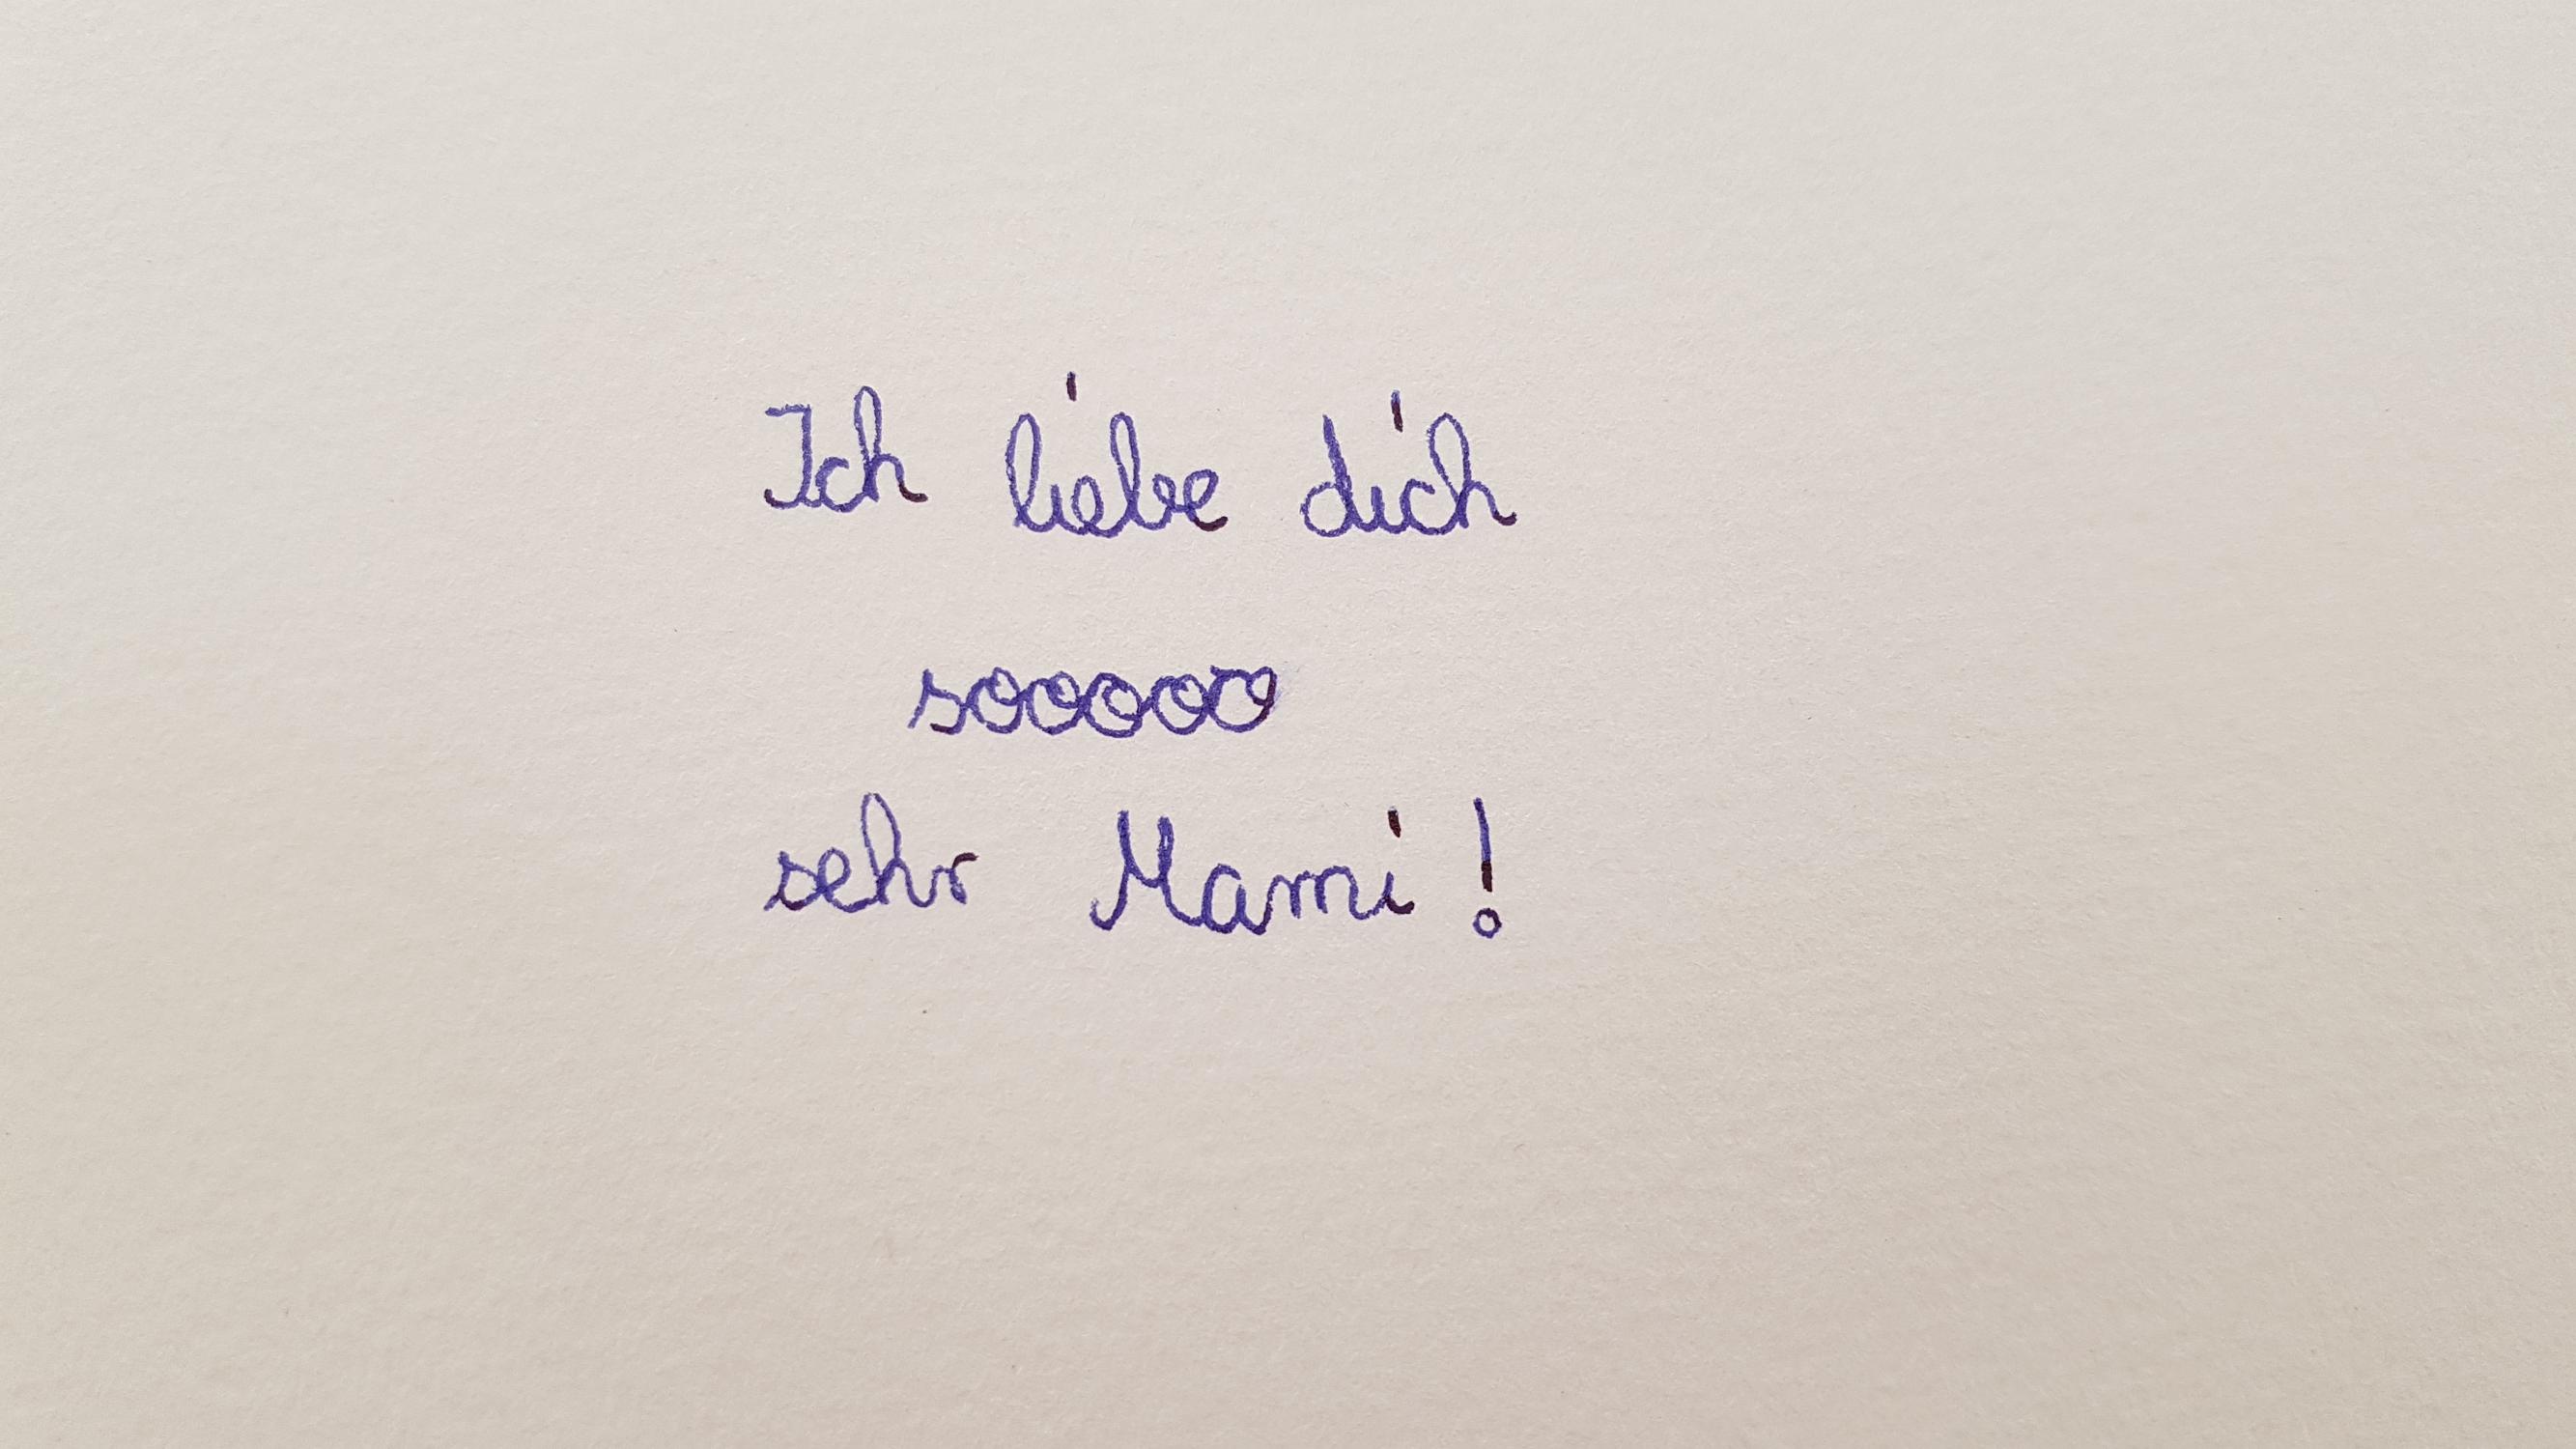 Ich liebe dich
sooooo
sehr Mami!